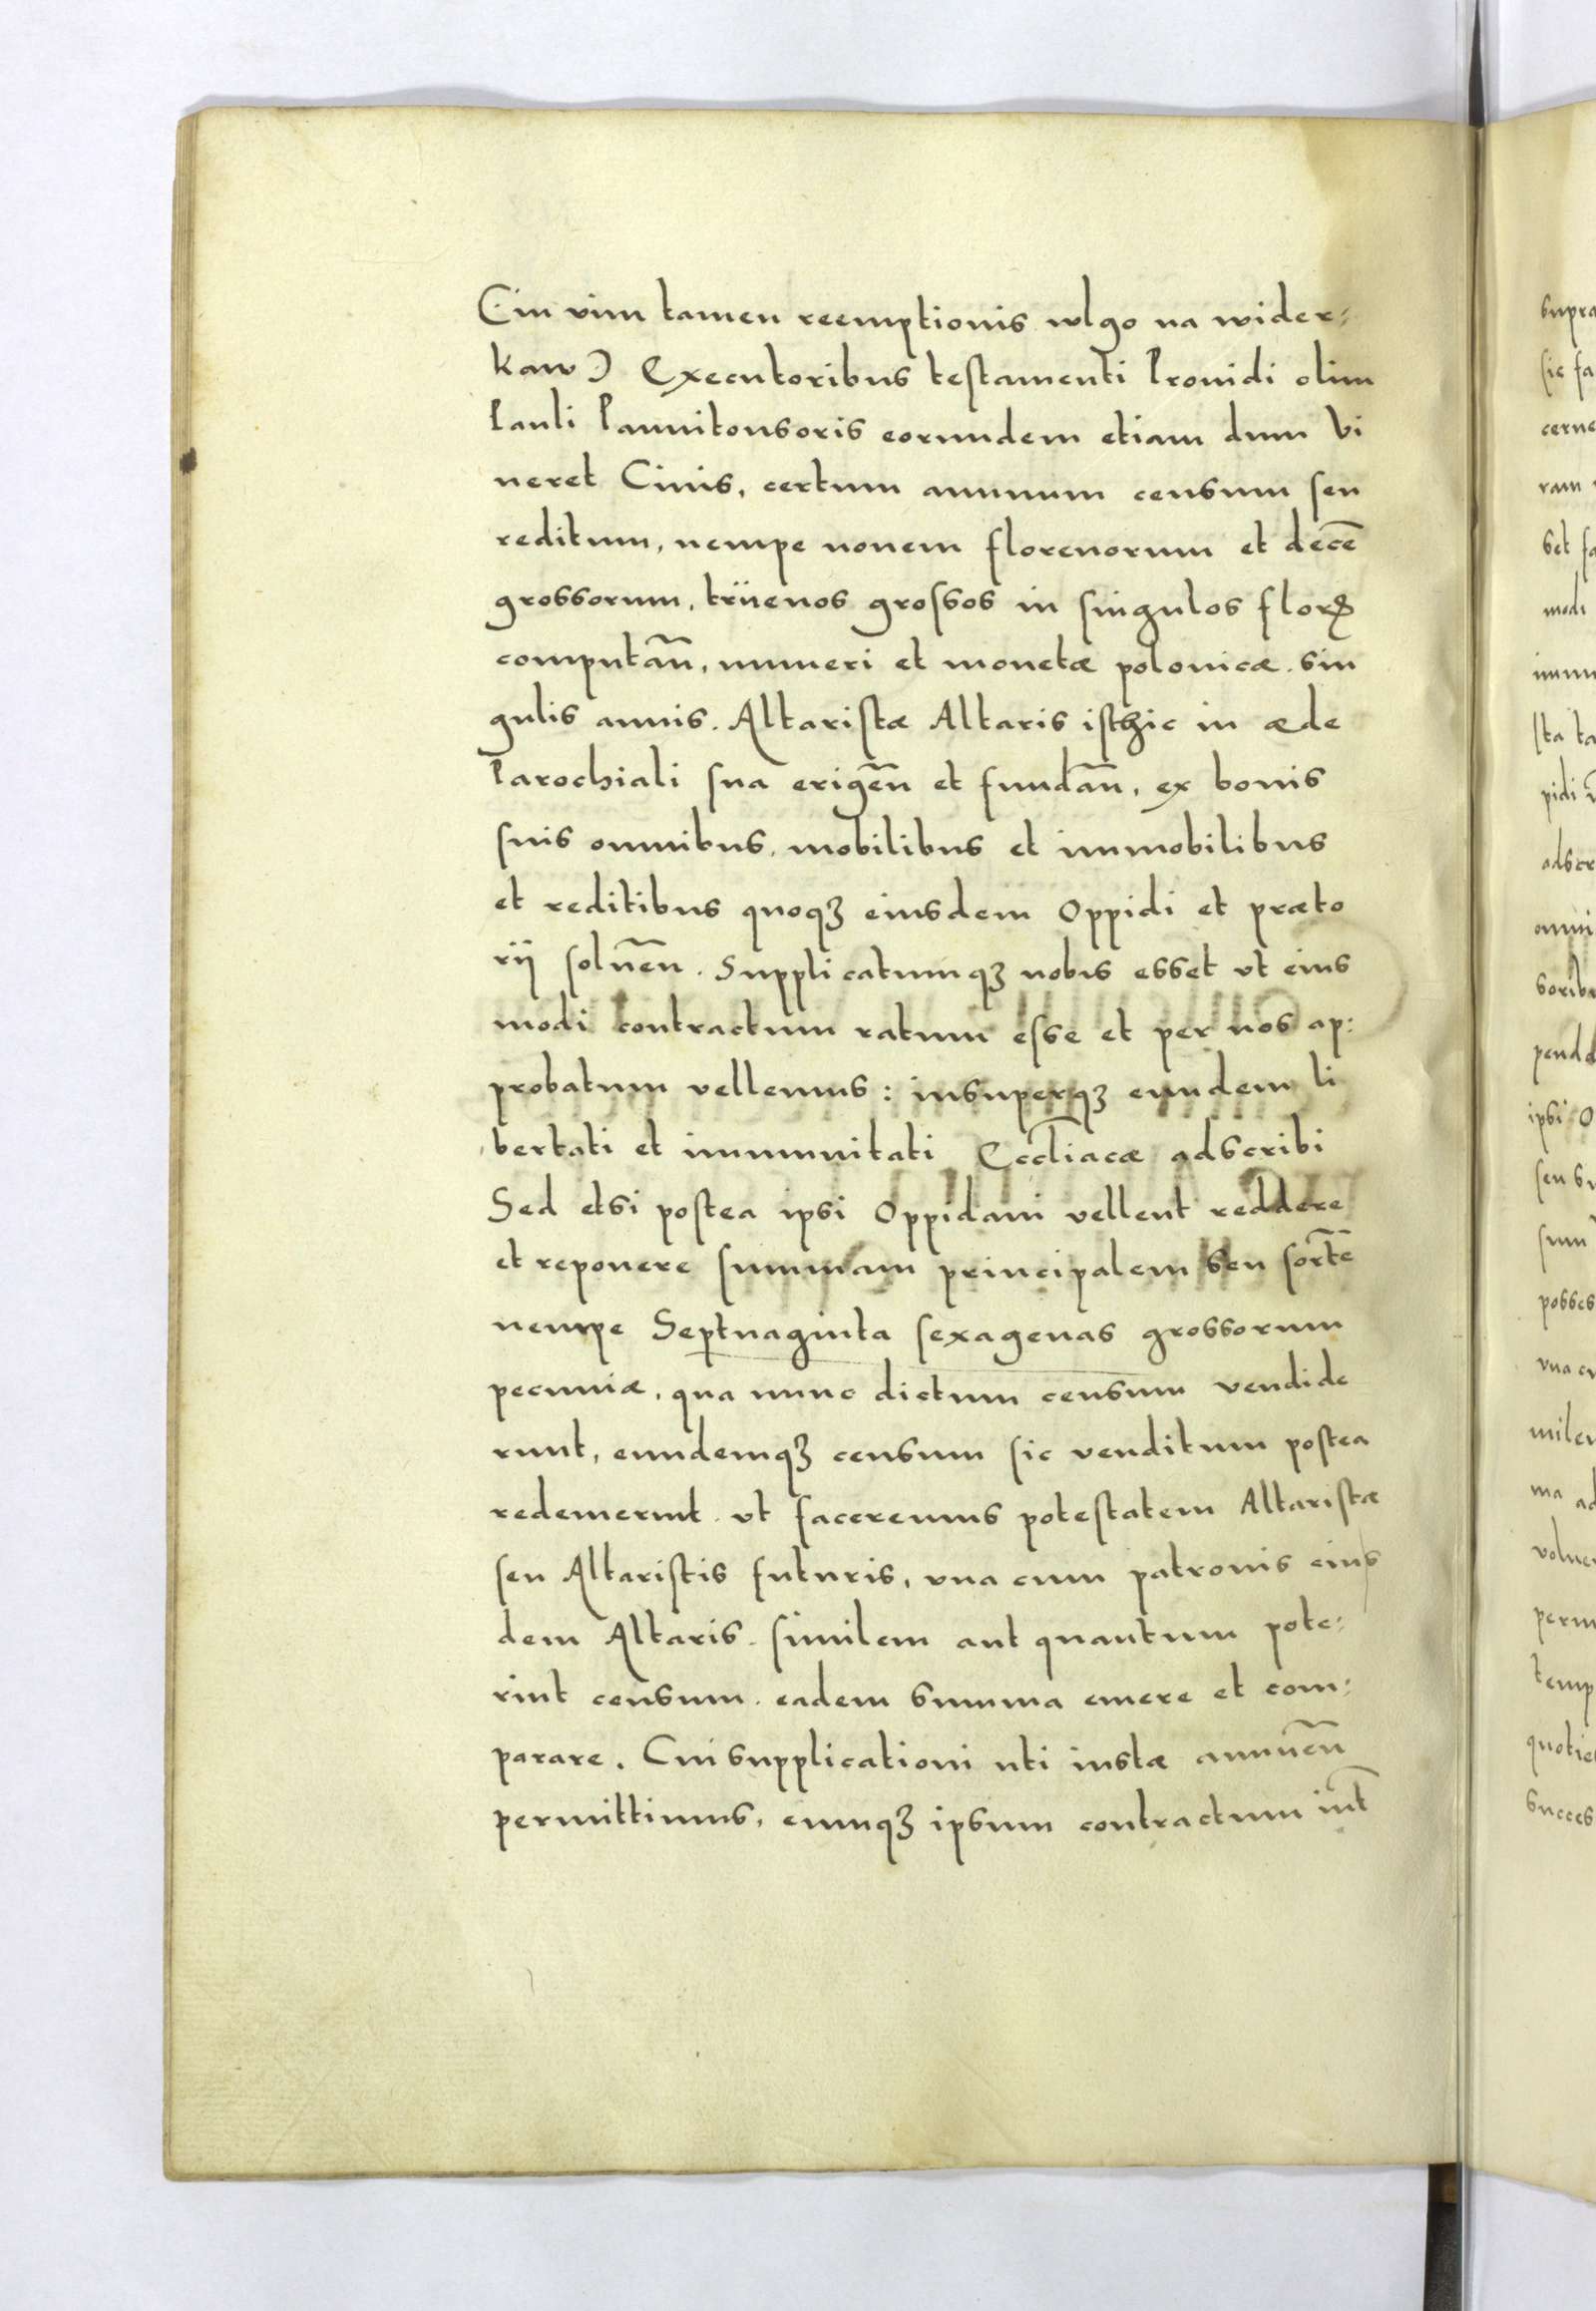 (in vim tamen reemptionis wlgo na wider:
kaw) Executoribus testamenti Prouidi olim
Pauli Pannitonsoris eorumdem etiam dum vi
ueret Ciuis, certum annuum censum seu
reditum, nempe nouem florenorum et decē
grossorum, trüenos grossos in singulos florꝝ
computan̄, numeri et monetæ polonicæ. sin
gulis annis. Altaristæ Altaris isthic in æde
Parochiali sua erigen̄ et fundan̄, ex bonis
suis omnibus, mobilibus et immobilibus
et reditibus quoqꝫ eiusdem Oppidi et præto
rij soluen̄. Supplicatumqꝫ nobis esset vt eius
modi contractum ratum esse et per nos ap:
probatum vellemus: insuperqꝫ eundem li
bertati et immunitati Eccl̄iacæ adscribi
Sed etsi postea ipsi Oppidani vellent reddere
et reponere summam principalem seu sortē
nempe Septuaginta sexagenas grossorum
pecuniæ, qua nunc dictum censum vendide
runt, eundemqꝫ censum sic venditum postea
redemerint. vt faceremus potestatem Altaristæ
seu Altaristis futuris, vna cum patronis eius
dem Altaris. similem aut quantum pote:
rint censum. eadem summa emere et com:
parare. Cui supplicationi uti iustæ annuen̄
permittimus, eumqꝫ ipsum contractum int̄
supra
sic fa
cerne
ram
set fa
modi
immu
sta ta
pidi
adscr
omni
soribu
penda
ipsi O
seu su
sum
posses
vna cu
milem
ma ad
volue
perm
temp
quotie
succes